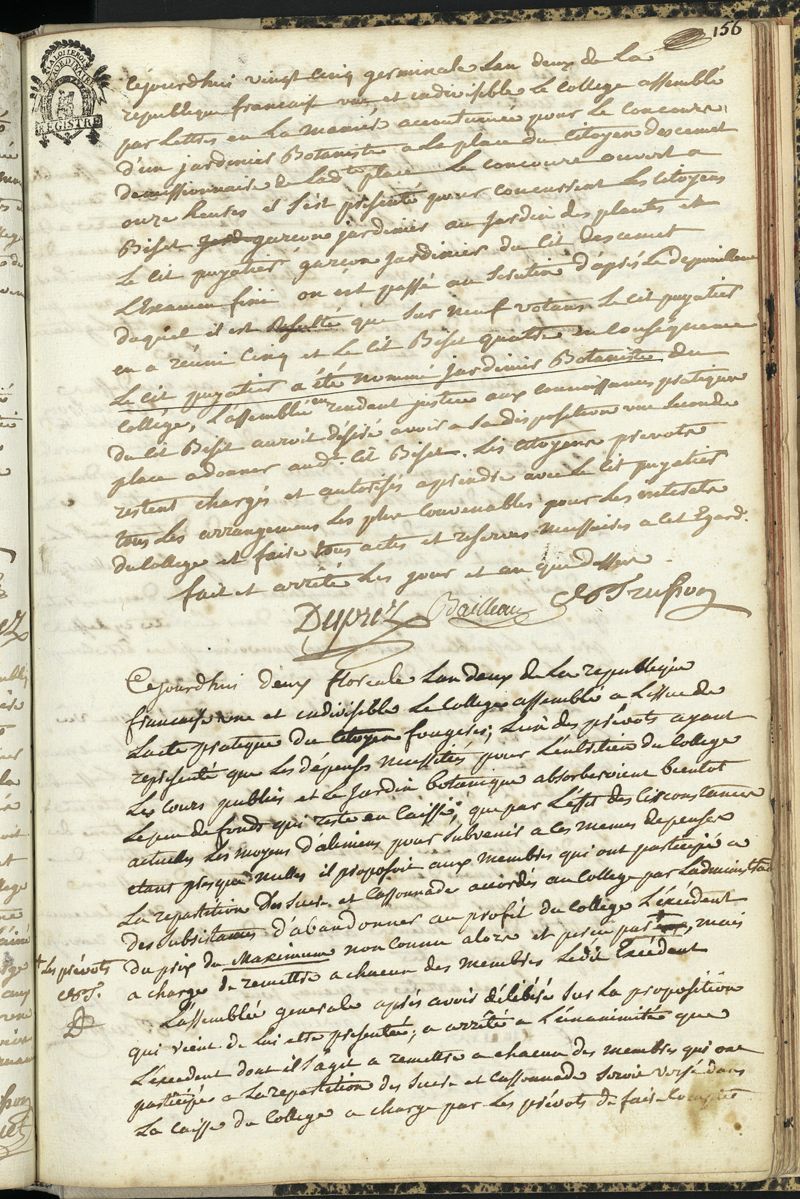 156
LA LOI LE ROI
EXTRAORDINAIRE
REGISTRE
Cejourdhui vingt cinq germinale Lan deux de La
republique francaise une et indivisible Le College assemblé
par Lettres en La maniere accoutumée pour Le concours
d'un jardinier Botaniste a La place du Citoyen Descemet
demissionnaire de Ladte place Le concours ouvert a
onze heures il s'est présenté pour concurrent Les Citoyens
Biset garçon jardinier au Jardin des plants et
Le Cit puyatier garçon Jardinier du Cit Descemet
L'Examen fini on est passé au Scrutin d'après Le Depouillement
duquel il est Resulté que Sur neuf votans Le Cit puyatier
en a réuni Cinq et Le Cit Biset quatre en Conséquence
Le Cit puyatier a été nommé jardinier Botaniste du
Collége, L'assemblée en rendant justice aux connoissances pratiques
du Cit Biset auroit désiré avoir a Sa disposition une Seconde
place a donner audt Cit Biset. Les Citoyens prevots
restent chargés et autorisés a prendre avec Le Cit puyatier
tous Les arrangemens Les plus Convenables pour Les interets
du College et faire tous actes et reserves necessaires a Cet Egard.
fait et arrêté Les jour et an que dessus
Duprez Bailleau
Cejourdhui deux floreale Lan deux de La republique
francaise une et indivisible Le College assemblé a L'issue de
Lacte pratique du Citoyen fougeres; L'un des prévots ayant
representé que Les dépenses necessitées pour L'entretien du College
Les Cours publics et Le Jardin botanique absorberoient bientot
Le peu de fonds qui reste en Caisse, que par L'effet des Circonstances
actuelles Les moyens d'aliniens pour Subvenir a Ces memes depenses
etant presque nulles il proposoit aux membres qui ont participé a
La repartition des Sucre et Cassonnade accordés au College par Ladministration
des Subsistances d'abandonner au profit du College L'éxcedent
du prix du Maximum non Connu alors et perçu par +, mais
a charge de remettre a chacun des membres Ledit Excédent
+ Les prévots
L'assemblée generale après avoir délibéré Sur La proposition
qui vient de Lui etre presentée, a arrêté a L'unanimité que
L'éxcedent dont il s'agit a remettre a chacun des membres qui ont
participés a La repartition des Sucre et Cassonnade Seroit versé dans
La Caisse du College a charge par Les prévots de faire Compte